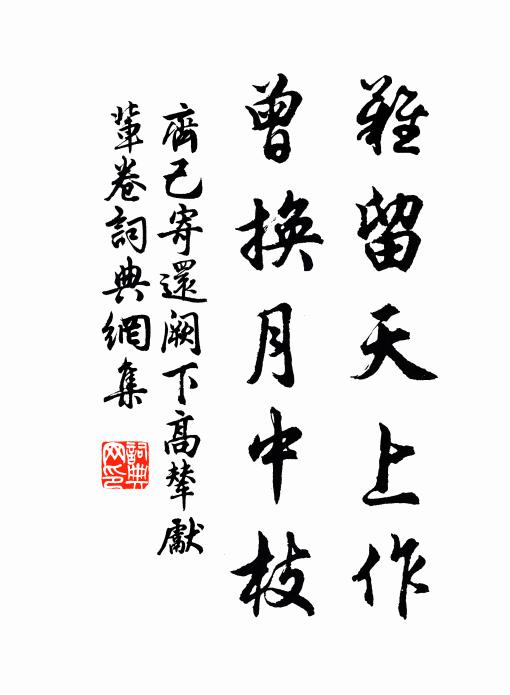 難留天上作
曾換月中枝
齊己寄還闕下高輦獻
輦卷詞典網集
詞典网印